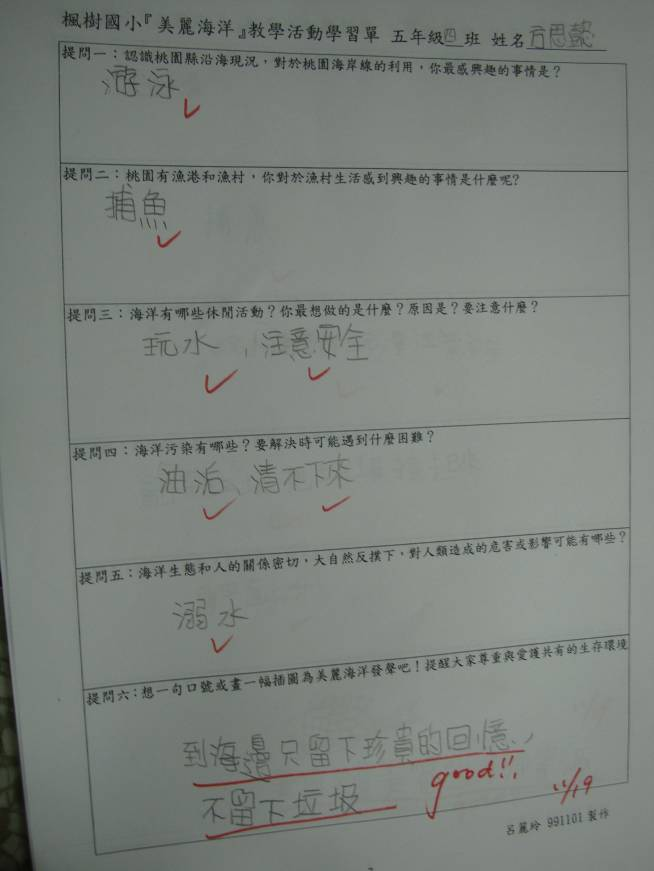 楓樹國小『美麗海洋』教學活動學習單 五年級四班 姓名方思懿
提問一：認識桃園縣沿海現況，對於桃園海岸線的利用，你最感興趣的事情是？
游泳
提問二：桃園有漁港和漁村，你對於漁村生活感到興趣的事情是什麼呢？
捕魚
提問三：海洋有哪些休閒活動？你最想做的是什麼？原因是？要注意什麼？
玩水、注意安全
提問四：海洋污染有哪些？要解決時可能遇到什麼困難？
油垢、清不下來
提問五：海洋生態和人的關係密切，大自然反撲下，對人類造成的危害或影響可能有哪些？
溺水
提問六：想一句口號或畫一幅插圖為美麗海洋發聲吧！提醒大家尊重與愛護共有的生存環境
到海邊只留下珍貴的回憶，
good!!
不留下垃圾
11/19
呂麗玲 991101 製作